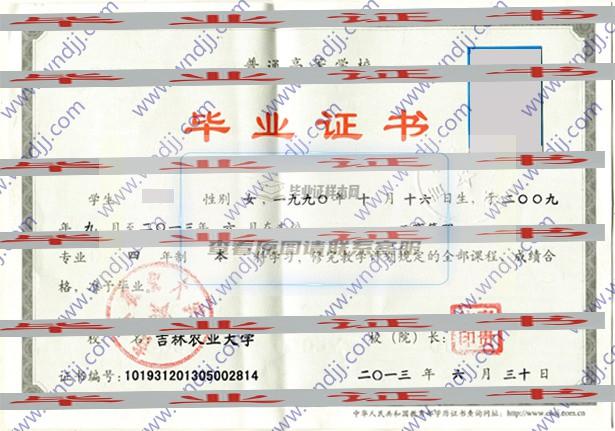 普通高等学校
毕业证书
学生 性别 女，一九九〇年 十 月 十六 日生，于二〇〇九
年 九 月至二〇一三年 六 月在本校
专业 四 年制 本 科学习，修完教学计划规定的全部课程，成绩合
格，准予毕业。
毕业证样本网
查看原图请联系客服
校 名：吉林农业大学
校（院）长：
证书编号：101931201305002814
二〇一三 年 六 月 三十 日
中华人民共和国教育部学历证书查询网址：http://www.chsi.com.cn
www.wndjj.com
毕 业 证 书